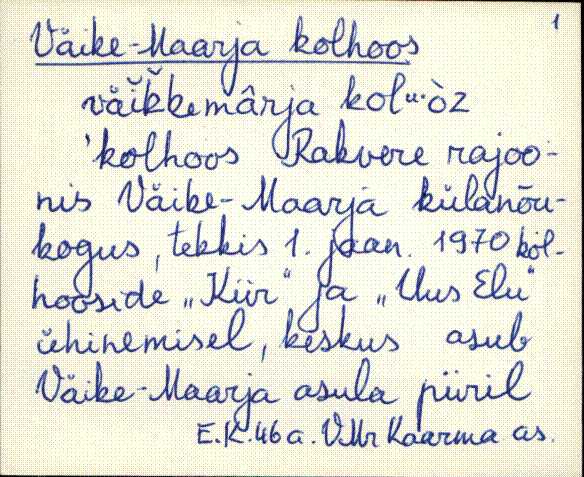 1
Väike-Maarja kolhoos
väĭk̆kemârja kol"·òz
'kolhoos Rakvere rajoo-
nis Väike-Maarja külanõu-
kogus, tekkis 1. jaan. 1970 kol-
hooside „Kiir" ja „Uus Elu"
ühinemisel, keskus asub
Väike-Maarja asula piiril
E.K. 46 a. V.Mr Kaarma as.